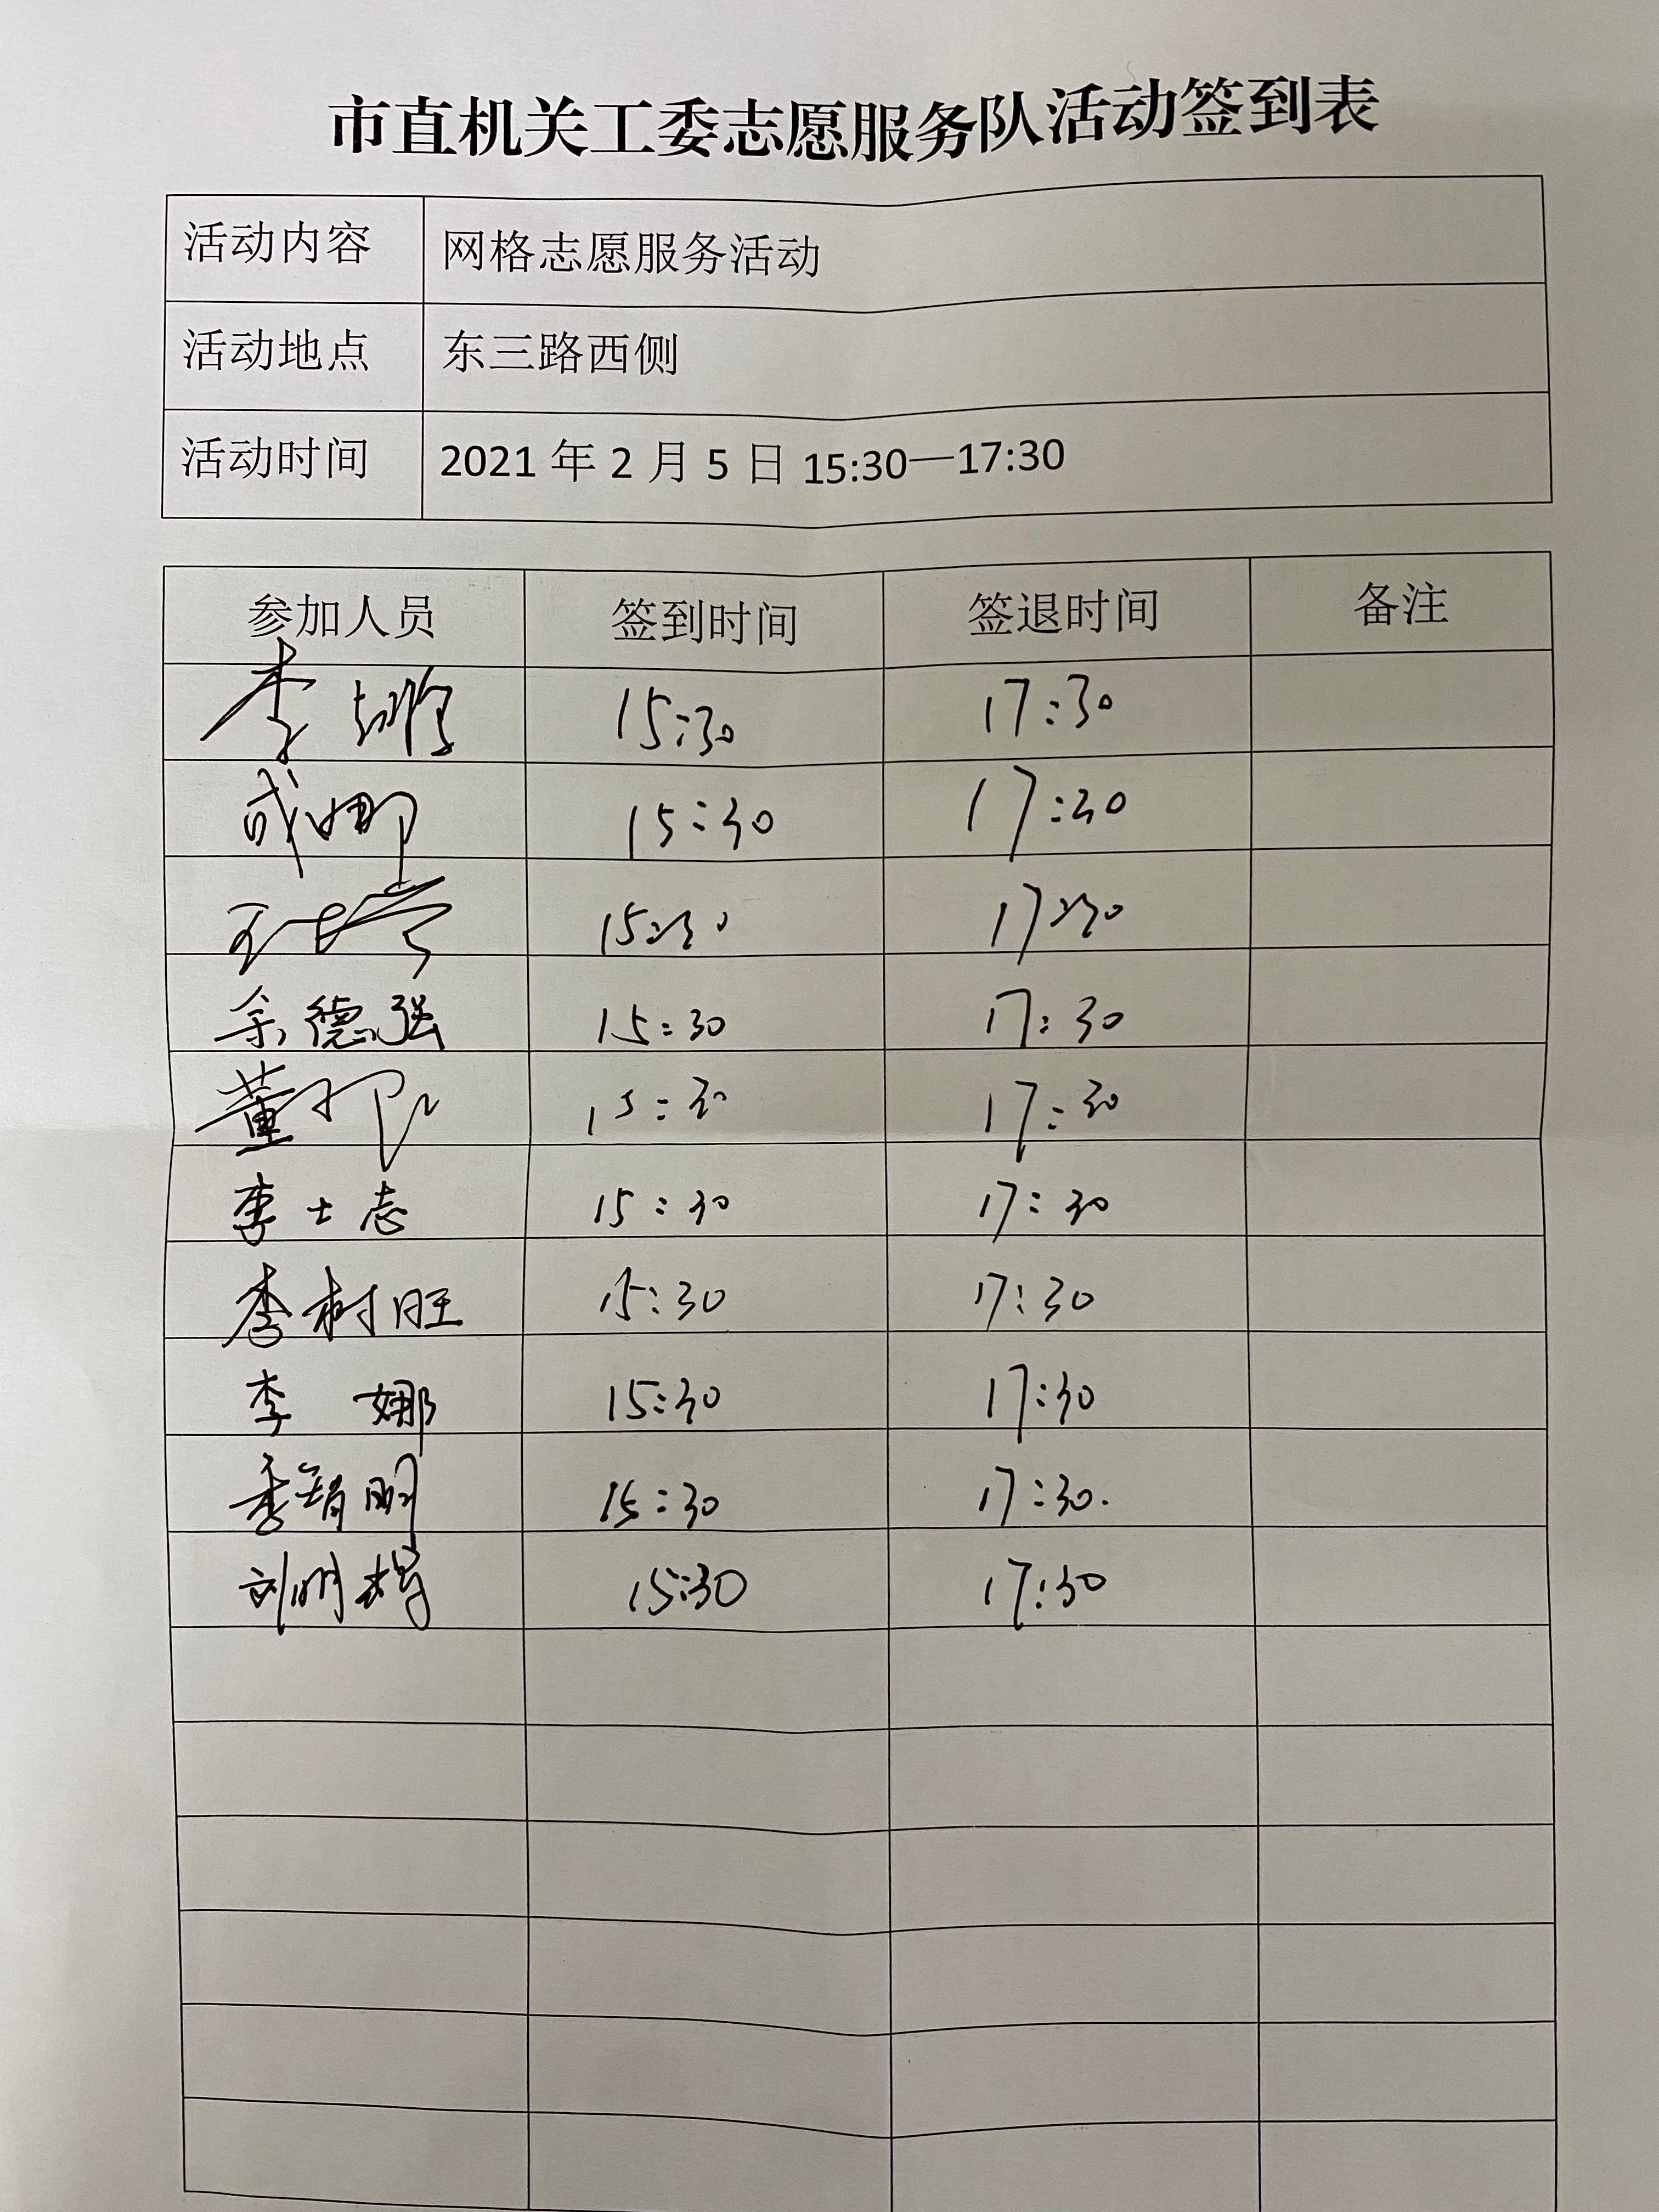 市直机关工委志愿服务队活动签到表
活动内容 网格志愿服务活动
活动地点 东三路西侧
活动时间 2021 年 2 月 5 日 15:30—17:30
参加人员 签到时间 签退时间 备注
李 15:30 17:30
成娜 15:30 17:30
15:30 17:30
余德强 15:30 17:30
董 15:30 17:30
李士志 15:30 17:30
李树旺 15:30 17:30
李 娜 15:30 17:30
季 明 15:30 17:30.
刘明 15:30 17:30